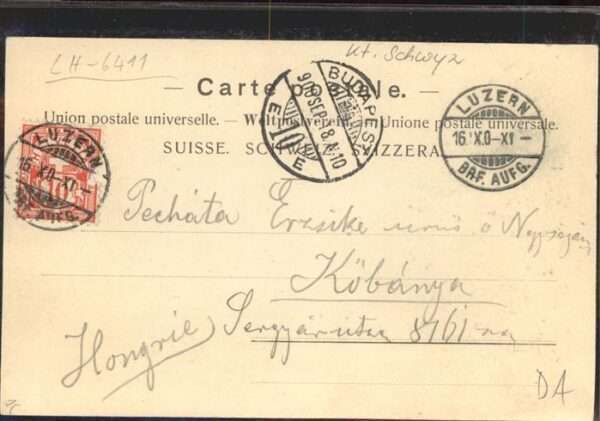 CH-6411
Kt. Schwyz
Carte postale.
Union postale universelle. — Weltpostverein. — Unione postale universale.
SUISSE. SCHWEIZ. SVIZZERA.
LUZERN
16. X.0-XI-
BRF. AUFG.
BUDAPEST
900 SEP 18 N 10
E
10
E
LUZERN
16. X.0-XI-
BRF. AUFG.
Pecháta Erzsike
Kőbánya
Hongrie
8761